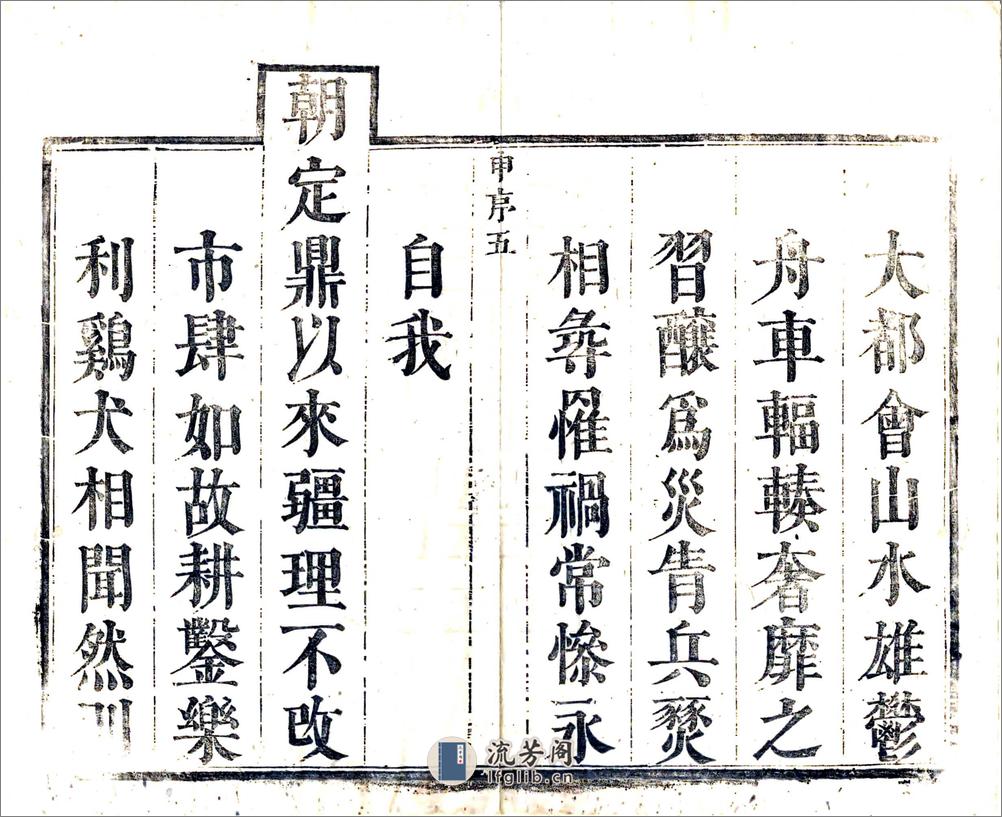 大都會山水雄鬱
舟車輻輳奢靡之
習釀爲災眚兵燹
相尋罹禍常慘永
申序五
自我
朝定鼎以來疆理不改
市肆如故耕鑿樂
利鷄犬相聞然
流芳阁
lfglib.cn